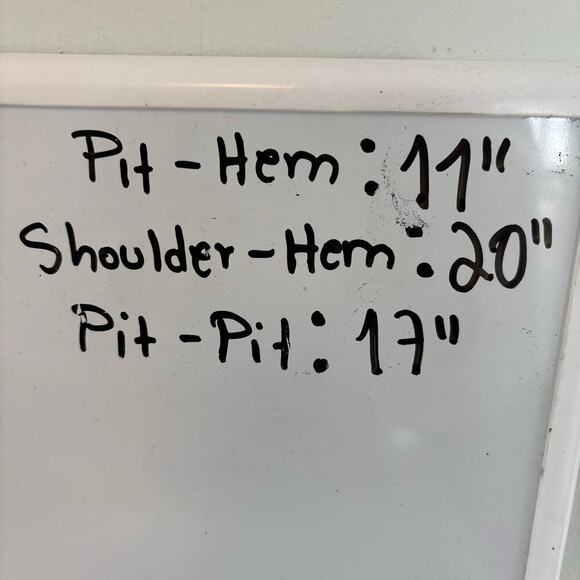 Pit - Hem : 11"
Shoulder - Hem : 20"
Pit - Pit : 17"